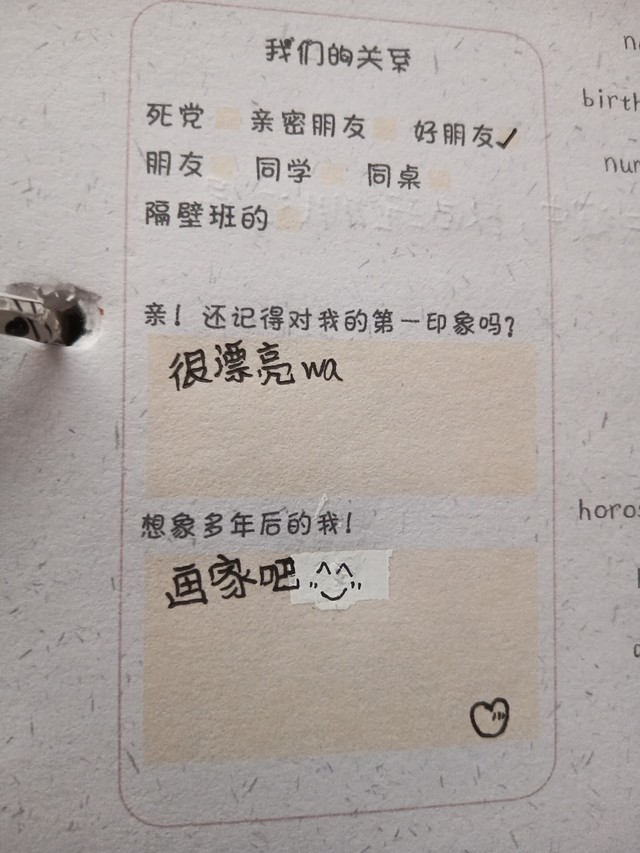 我们的关系
死党 亲密朋友 好朋友✓
朋友 同学 同桌
隔壁班的
亲！还记得对我的第一印象吗？
很漂亮wa
想象多年后的我！
画家吧^^
birth
horos